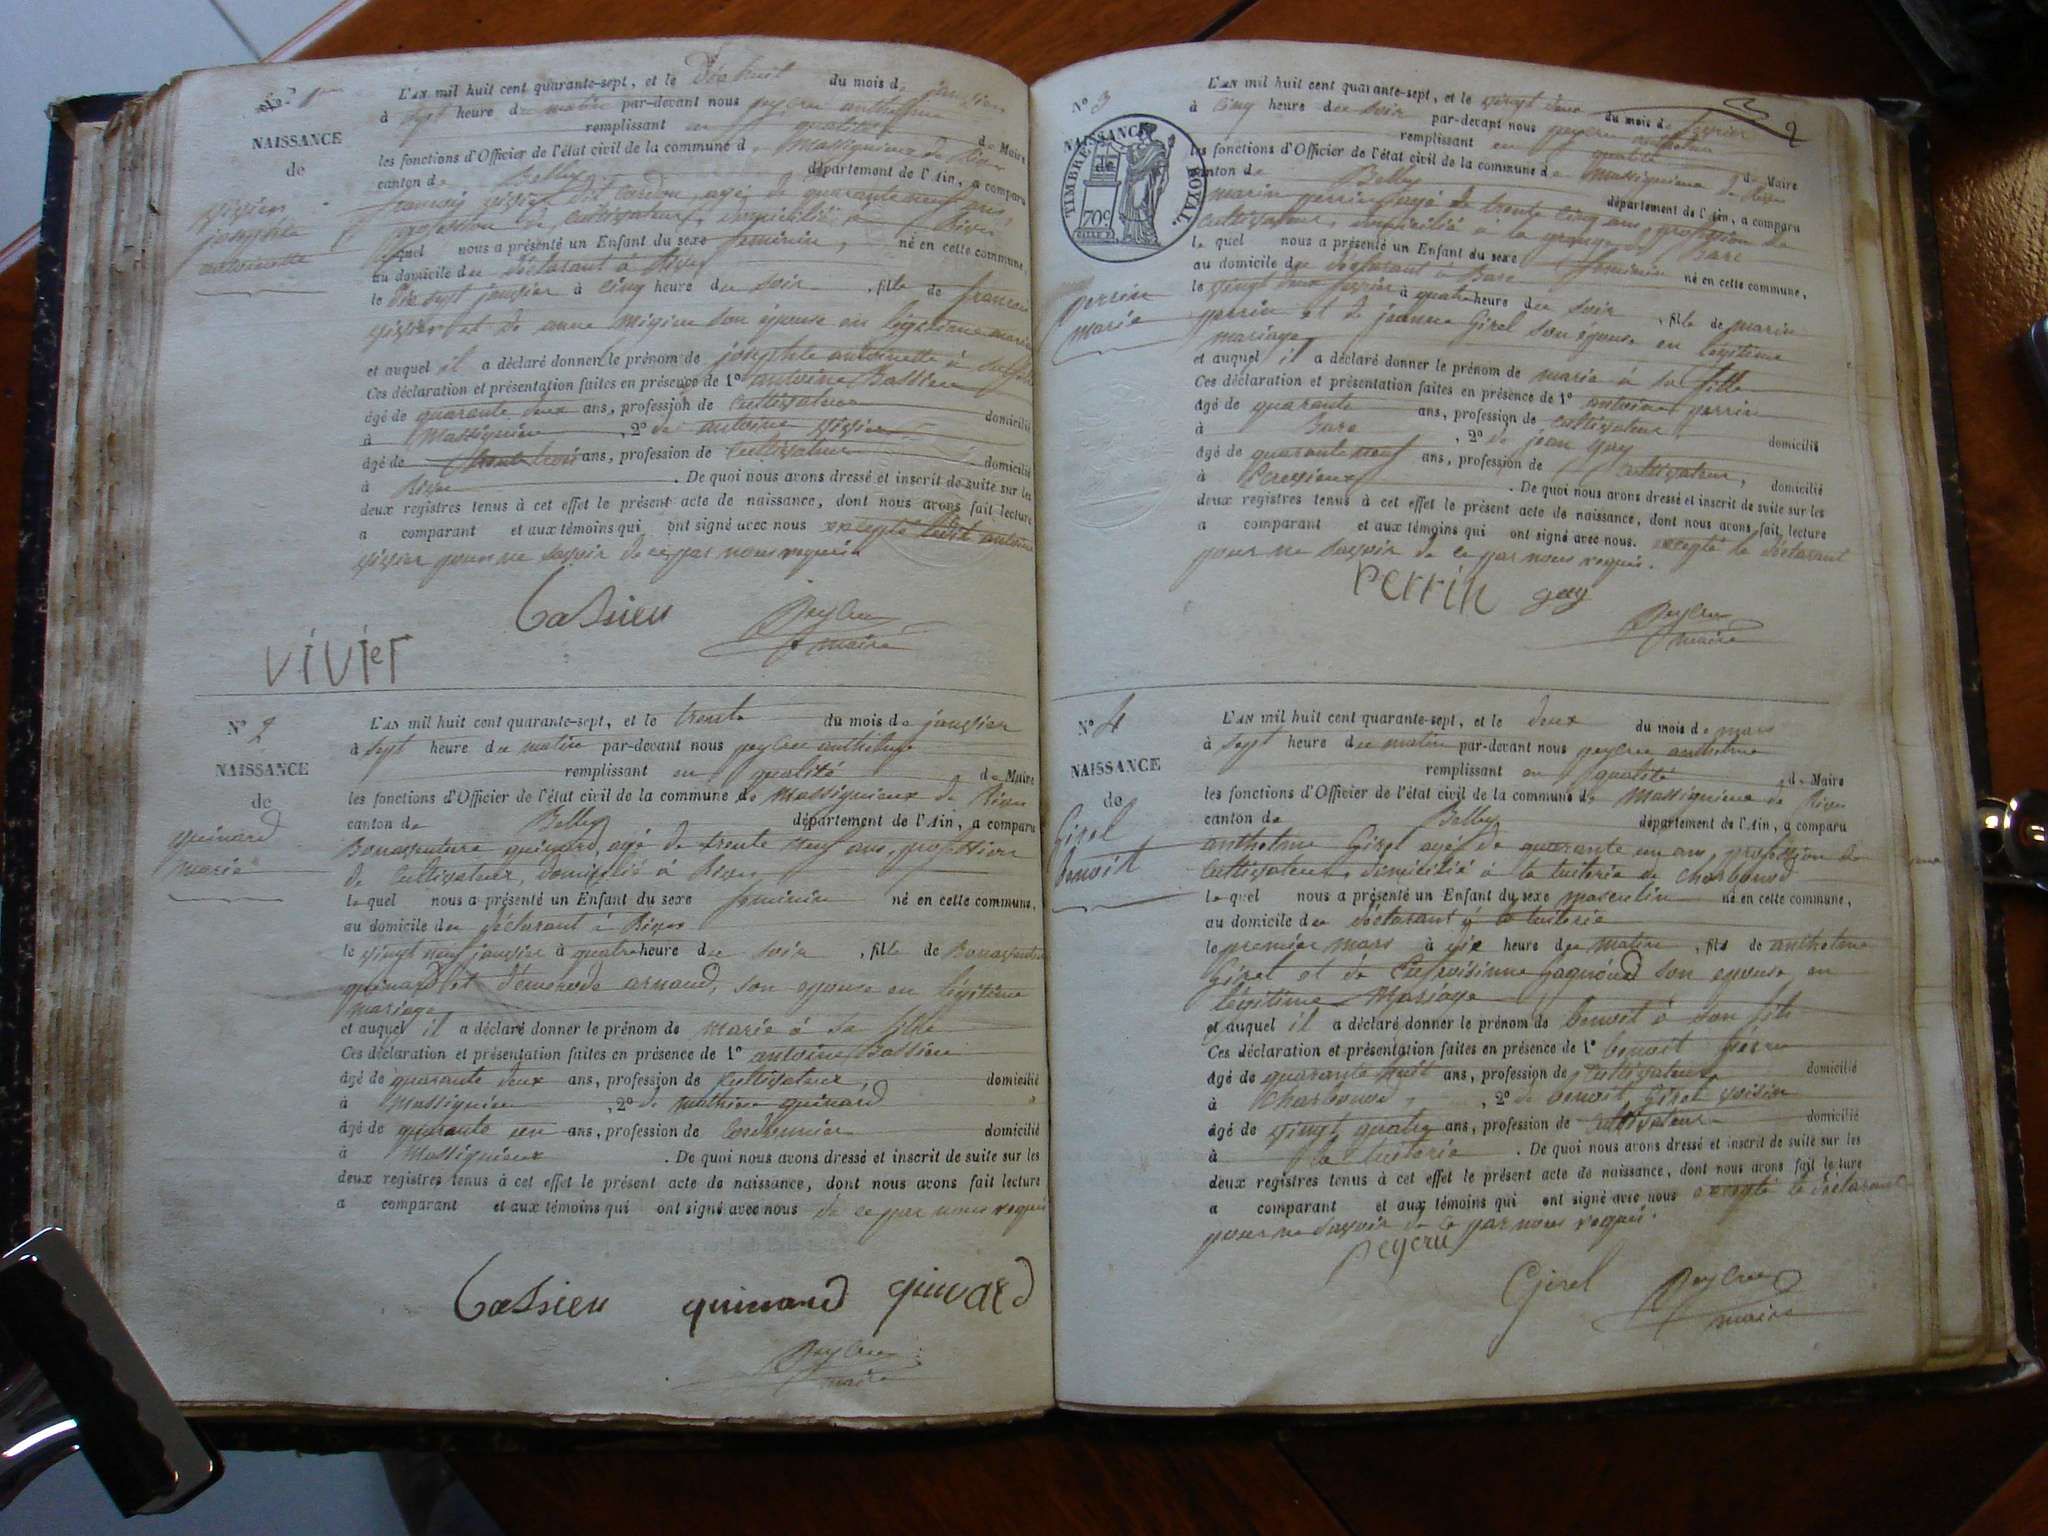 N° 1er
NAISSANCE
de
vivier
josephte
antoinette
L'AN mil huit cent quarante-sept, et le dix huit du mois de janvier
à sept heure du matin par-devant nous peycru anthelme
remplissant en qualité de Maire
les fonctions d'Officier de l'état civil de la commune de Massignieux de Rives
canton de Belley département de l'Ain, a comparu
françois vivier dit cardon, agé de quarante neuf ans,
profession de cultivateur, domicilié à Rives
lequel nous a présenté un Enfant du sexe feminin, né en cette commune,
au domicile du déclarant à Rives
le dix sept janvier à cinq heure du soir, fille de francois
vivier et de anne son epouse en légitime mariage
et auquel il a déclaré donner le prénom de josephte antoinette à sa fille
Ces déclaration et présentation faites en présence de 1° antoine Bassieu
âgé de quarante deux ans, profession de cultivateur domicilié
à Massignieu, 2° de antoine vivier
âgé de trente trois ans, profession de cultivateur domicilié
à Rives. De quoi nous avons dressé et inscrit de suite sur les
deux registres tenus à cet effet le présent acte de naissance, dont nous avons fait lecture
a comparant et aux témoins qui ont signé avec nous excepté ledit antoine
vivier pour ne savoir de ce par nous requis
Bassieu
Peycru
maire
vivier
N° 2
NAISSANCE
de
quinard
marie
L'AN mil huit cent quarante-sept, et le trente du mois de janvier
à sept heure du matin par-devant nous peycru anthelme
remplissant en qualité de Maire
les fonctions d'Officier de l'état civil de la commune de Massignieux de Rives
canton de Belley département de l'Ain, a comparu
Bonaventure quinard, agé de trente neuf ans, profession
de cultivateur, domicilié à Rives
lequel nous a présenté un Enfant du sexe feminin né en cette commune,
au domicile du déclarant à Rives
le vingt neuf janvier à quatre heure du soir, fille de Bonaventure
quinard et arnaud, son epouse en légitime
mariage
et auquel il a déclaré donner le prénom de marie à sa fille
Ces déclaration et présentation faites en présence de 1° antoine Bassieu
âgé de quarante deux ans, profession de cultivateur, domicilié
à Massignieu, 2° de mathieu quinard
âgé de quarante un ans, profession de cordonnier domicilié
à Massignieux. De quoi nous avons dressé et inscrit de suite sur les
deux registres tenus à cet effet le présent acte de naissance, dont nous avons fait lecture
a comparant et aux témoins qui ont signé avec nous de ce par nous requis
Bassieu quinard quinard
Peycru
maire
2
N° 3
NAISSANCE
de
TIMBRE ROYAL.
70c
perrin
marie
L'AN mil huit cent quarante-sept, et le vingt deux du mois de fevrier
à cinq heure du soir par-devant nous peycru anthelme
remplissant en qualité de Maire
les fonctions d'Officier de l'état civil de la commune de Massignieux de Rives
canton de Belley département de l'Ain, a comparu
marin perrin agé de trente cinq ans, profession de
cultivateur, domicilié à la grange de Bare
lequel nous a présenté un Enfant du sexe feminin né en cette commune,
au domicile du déclarant à Bare
le vingt deux fevrier à quatre heure du soir, fille de marin
perrin et de jeanne Girel son épouse en légitime
mariage
et auquel il a déclaré donner le prénom de marie à sa fille
Ces déclaration et présentation faites en présence de 1° antoine perrin
âgé de quarante ans, profession de cultivateur, domicilié
à Bare, 2° de jean gay
âgé de quarante neuf ans, profession de cultivateur, domicilié
à Parissieux. De quoi nous avons dressé et inscrit de suite sur les
deux registres tenus à cet effet le présent acte de naissance, dont nous avons fait lecture
a comparant et aux témoins qui ont signé avec nous. excepté le déclarant
pour ne savoir de ce par nous requis.
Perrin gay
Peycru
maire
N° 4
NAISSANCE
de
Girel
Benoit
L'AN mil huit cent quarante-sept, et le deux du mois de mars
à sept heure du matin par-devant nous peycru anthelme
remplissant en qualité de Maire
les fonctions d'Officier de l'état civil de la commune de Massignieux de Rives
canton de Belley département de l'Ain, a comparu
anthelme Girel agé de quarante un ans, profession de
cultivateur, domicilié à la tuilerie de Charbonod
lequel nous a présenté un Enfant du sexe masculin né en cette commune,
au domicile du déclarant à la tuilerie
le premier mars à six heure du matin, fils de anthelme
Girel et de son epouse en
légitime Mariage
et auquel il a déclaré donner le prénom de benoit à son fils
Ces déclaration et présentation faites en présence de 1° benoit
âgé de quarante huit ans, profession de cultivateur domicilié
à Charbonod, 2° de benoit Girel voisin
âgé de vingt quatre ans, profession de cultivateur domicilié
à la tuilerie. De quoi nous avons dressé et inscrit de suite sur les
deux registres tenus à cet effet le présent acte de naissance, dont nous avons fait lecture
a comparant et aux témoins qui ont signé avec nous excepté le déclarant
pour ne savoir de ce par nous requis.
peycru
Girel
Peycru
maire